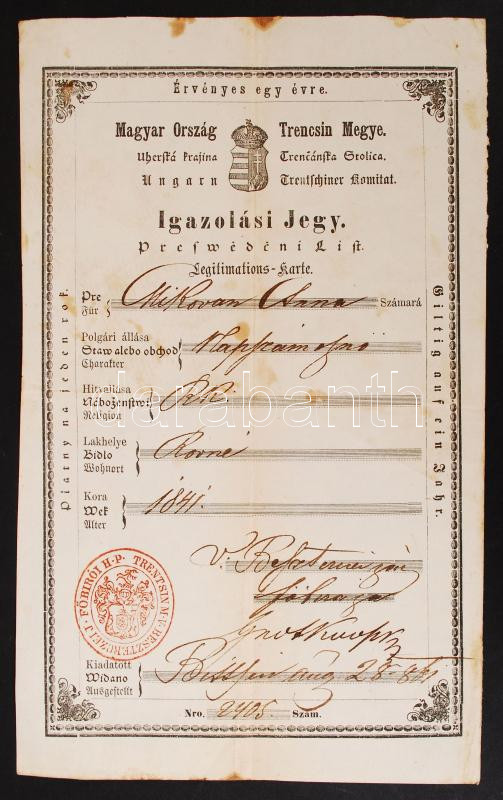 Érvényes egy évre.
Magyar Ország Trencsin Megye.
Uherská krajina Trenčánska Stolica.
Ungarn Trentschiner Komitat.
Igazolási Jegy.
Preswědčení List.
Legitimations-Karte.
Pre
Für
Mikovan Anna
Számará
Polgári állása
Staw alebo obchod
Charakter
Napszámosnő
Hitvallása
Náboženstwí
Religion
RK.
Lakhelye
Bidlo
Wohnort
Rovné
Kora
Wek
Alter
1841.
v. Besztercei járás
Kiadatott
Widano
Ausgestellt
Bittsin aug 28
Nro. 2405. Szám.
Platny na jeden rok.
Giltig auf ein Jahr.
FŐBIRÓI H.P. TRENTSIN M. V. BESZTERCZEI J.
darabanth